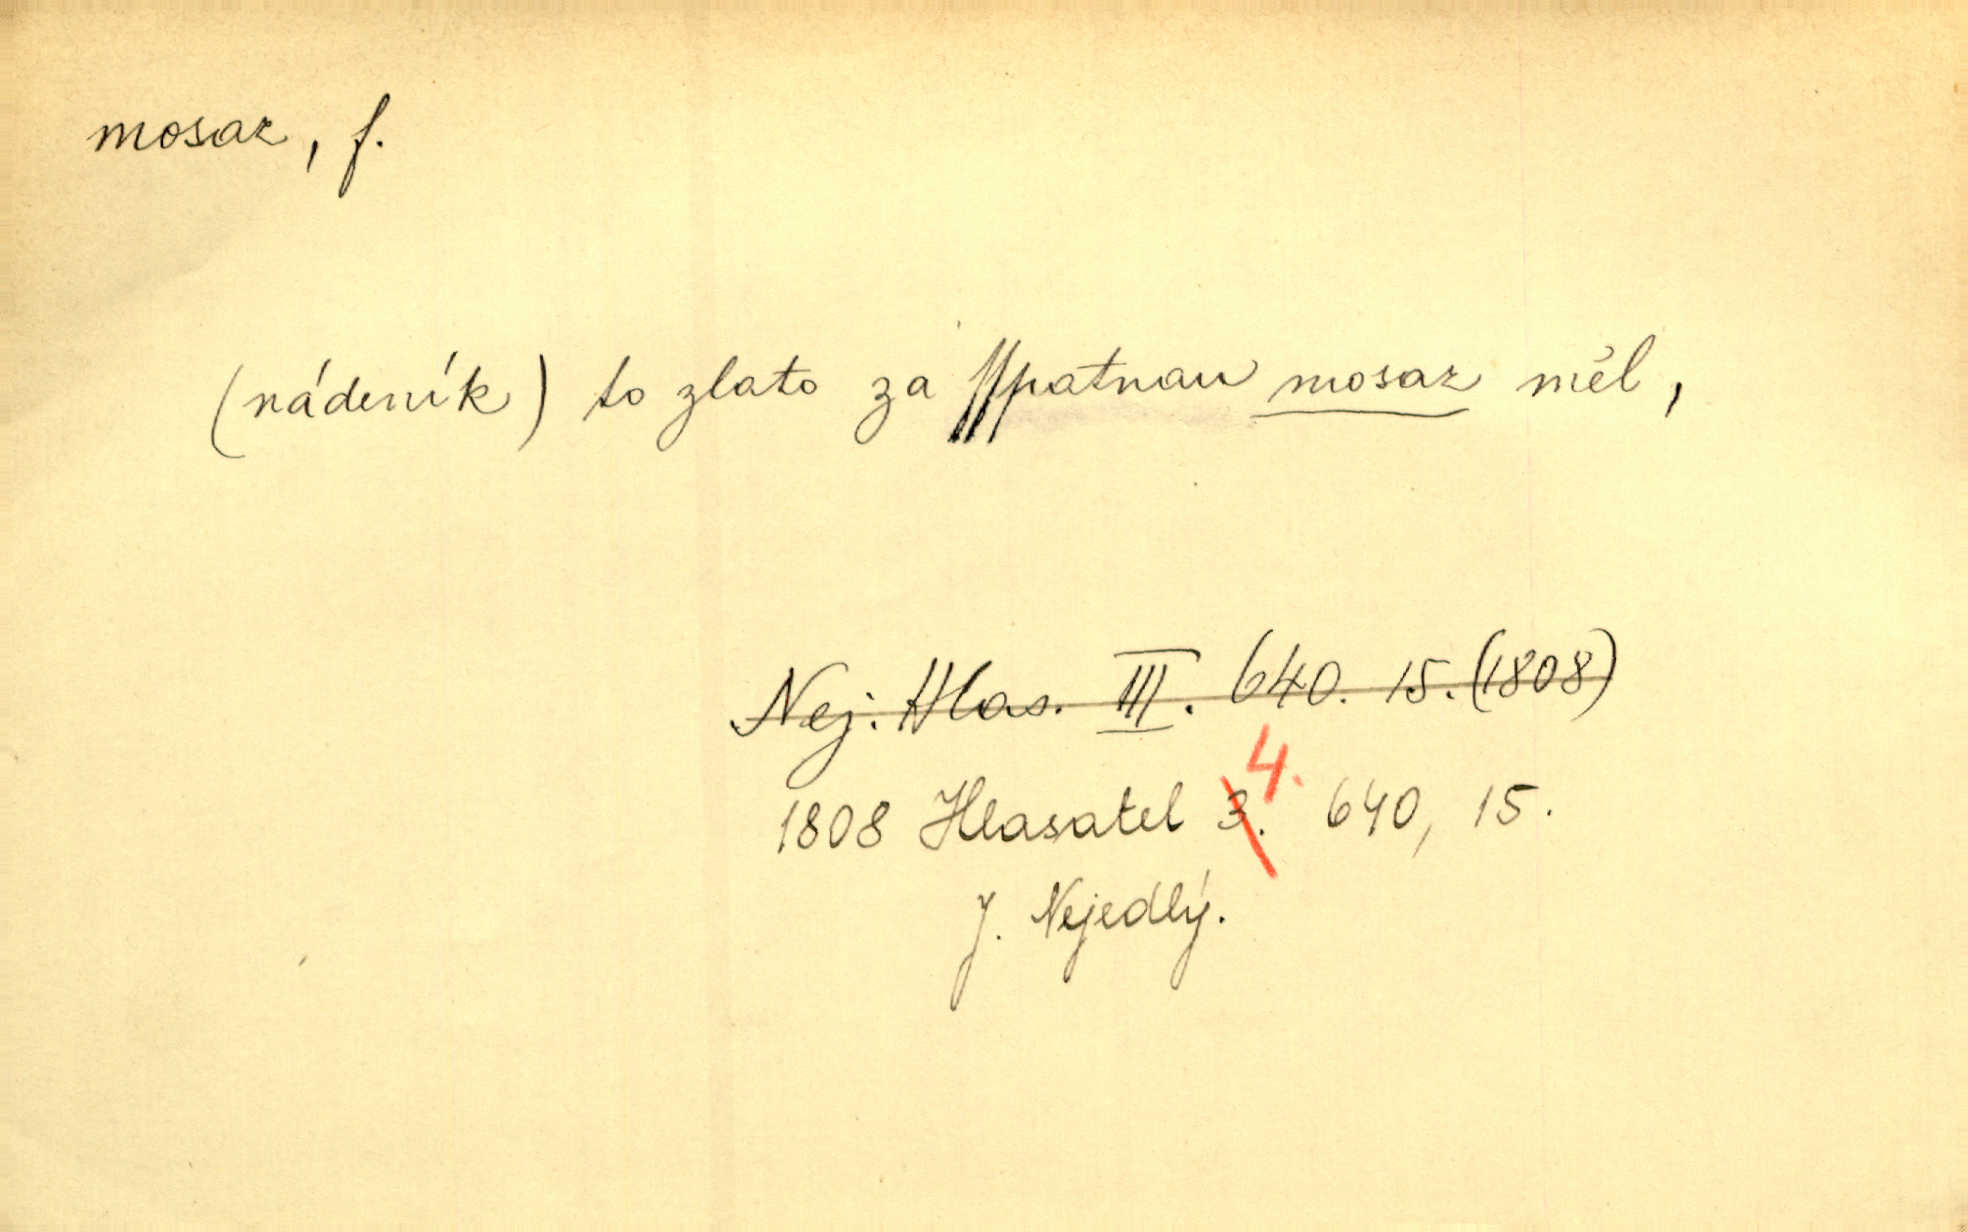 mosaz, f.
(nádeník) to zlato za sspatnau mosaz měl,
Nej. Hlas. III. 640. 15. (1808)
4.
1808 Hlasatel 3. 640, 15.
J. Nejedlý.